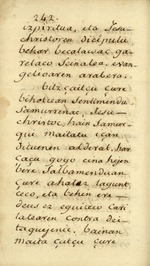 242.
izpiritua, eta Jesu-
christoren
behar becalacuac ga-
relaco seinalea. evan-
gelioaren arabera.
bitzcaitçu çure
bihotcean sentimendu
samurrenac, Jesu-
christoc, hain damur-
qui maitatu içan
dituenen alderat. har
çaçu gogo eina hojen
bere salbamenduan
çure ahalaz lagunt
ceco, eta behin ere
deus ez eguiteco cari-
tatearen contra dei
taquejenic. bainan
maita çaitçu çure